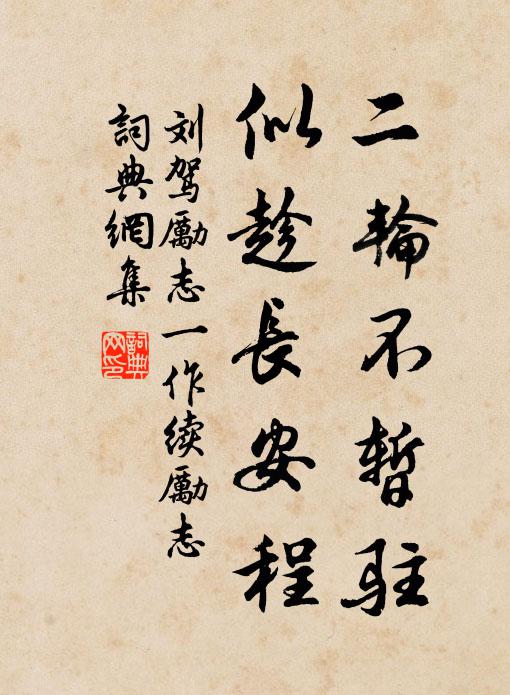 二輪不暫駐
似趁長安程
刘驾勵志一作续勵志
詞典網集
詞典网印